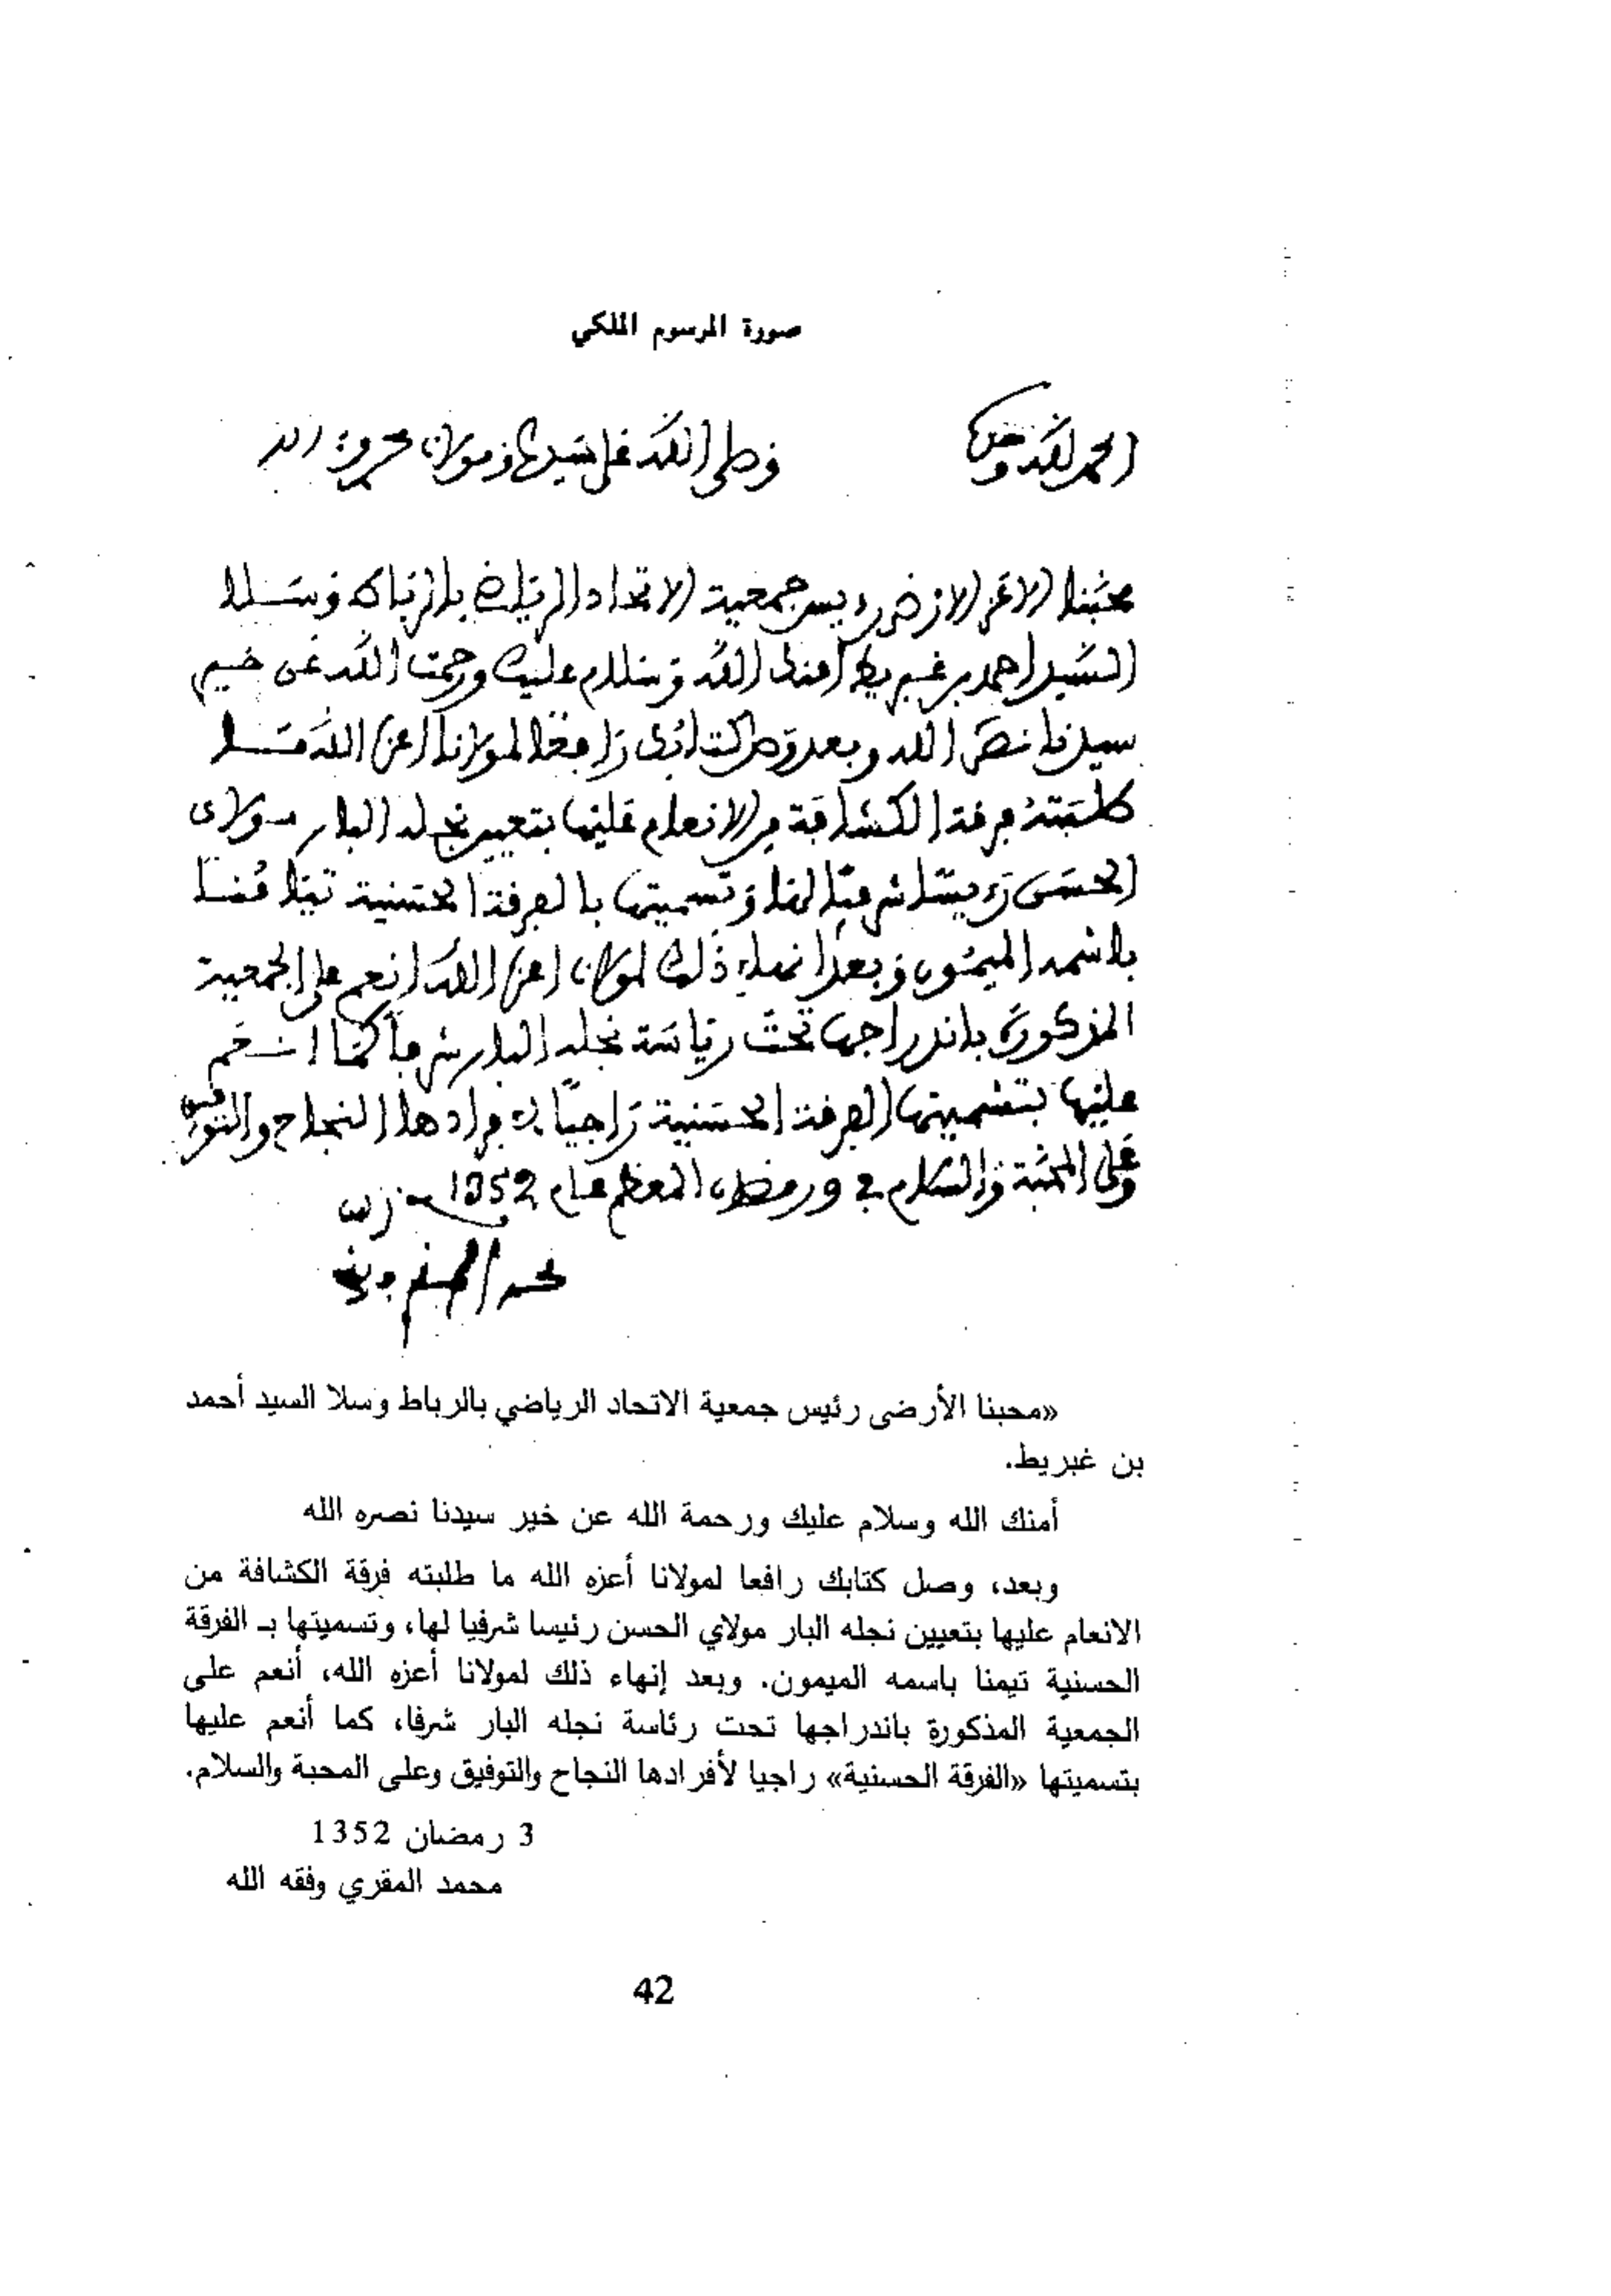 صورة المرسوم الملكي
الحمد لله وحده
وصلى الله على سيدنا ومولانا محمد وآله
محبنا الاعز الارضى رييس جمعية الاتحاد الرياضي بالرباط وسلا
السيد احمد بن غبريط امنك الله وسلام عليك ورحمت الله عن خير
سيدنا نصره الله وبعد وصل كتابك رافعا لمولانا اعزه الله مـا
طلبته فرقة الكشافة من الانعام عليها بتعيين نجله البار مولاى
الحسن رءيسا شرفيا لها وتسميتها بالفرقة الحسنية تيمنا
باسمه الميمون وبعد انهاء ذلك لمولانا اعزه الله انعم على الجمعية
المذكورة باندراجها تحت رياسة نجله البار شرفا كما انـعم
عليها بتسميتها الفرقة الحسنية راجيا لافرادها النجاح والتوفيق
وعلى المحبة والسلام في و رمضان المعظم عام 1352
محمد المقري وفقه
«محبنا الأرضى رئيس جمعية الاتحاد الرياضي بالرباط وسلا السيد أحمد
بن غبريط.
أمنك الله وسلام عليك ورحمة الله عن خير سيدنا نصره الله
وبعد، وصل كتابك رافعا لمولانا أعزه الله ما طلبته فرقة الكشافة من
الانعام عليها بتعيين نجله البار مولاي الحسن رئيسا شرفيا لها، وتسميتها بـ الفرقة
الحسنية تيمنا باسمه الميمون. وبعد إنهاء ذلك لمولانا أعزه الله، أنعم على
الجمعية المذكورة باندراجها تحت رئاسة نجله البار شرفا، كما أنعم عليها
بتسميتها «الفرقة الحسنية» راجيا لأفرادها النجاح والتوفيق وعلى المحبة والسلام.
3 رمضان 1352
محمد المقري وفقه الله
42